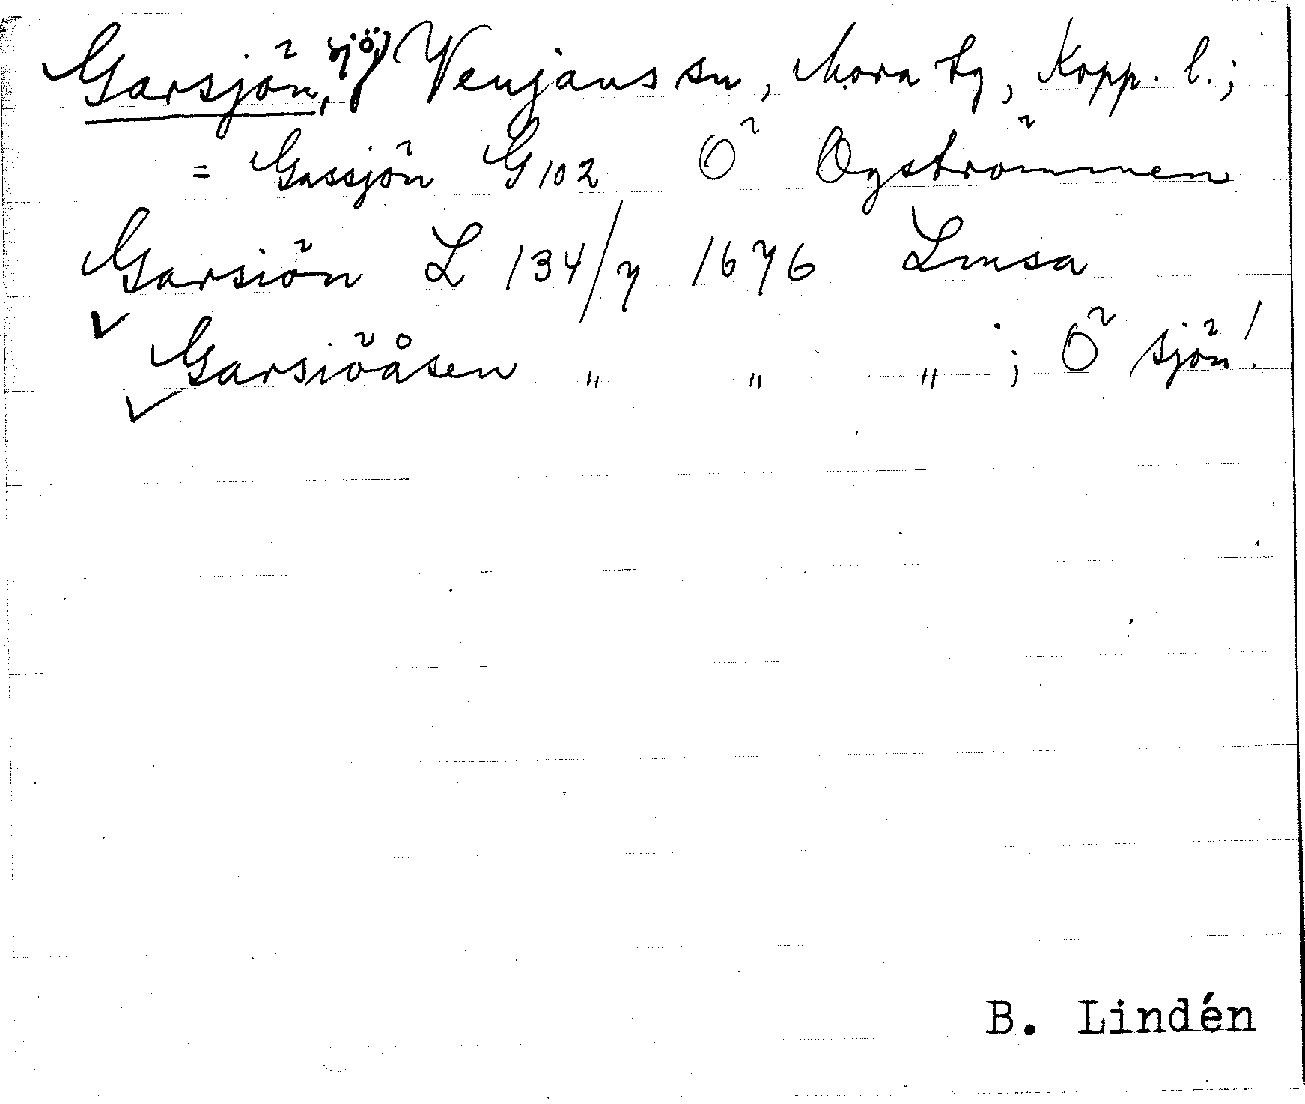 Garsjön, sjö, Venjans sn, Mora tg, Kopp. l.;
= Gassjön G 102 Ö Ogströmmen
Garsiön L 134/7 1676 Lmsa
Garsiöåsen " " " ; Ö sjön!
B. Lindén